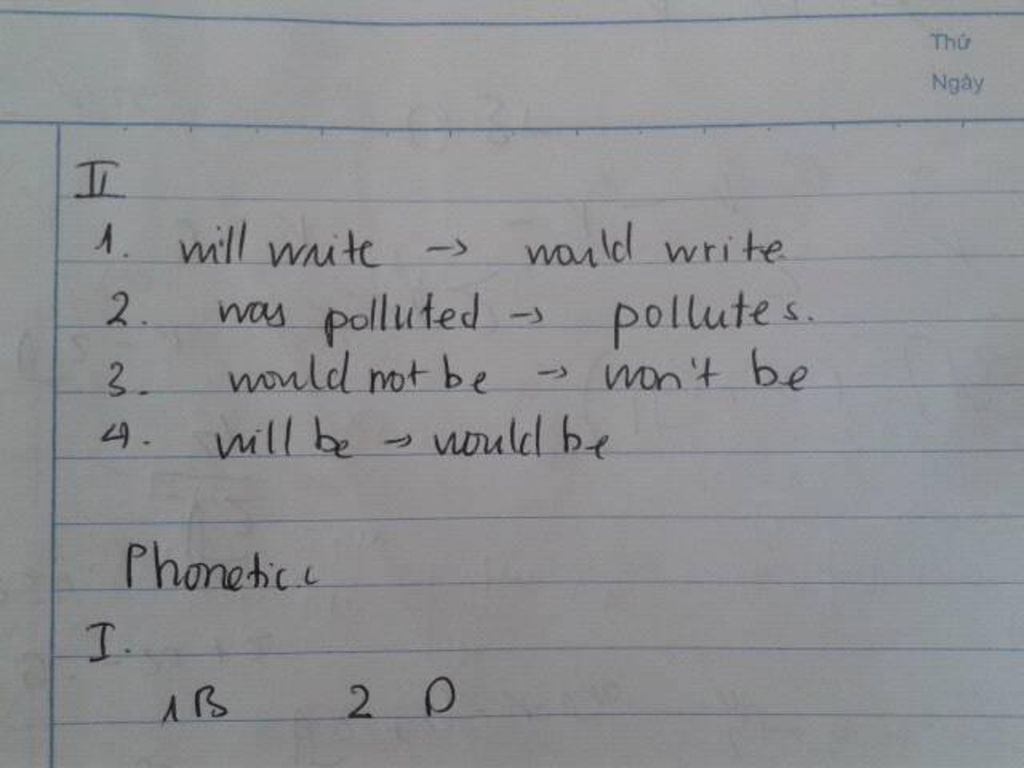 Thứ
Ngày
II
1. will write → would write
2. was polluted → pollutes.
3. would not be → won't be
4. will be → would be
Phonetics
I.
1B 2 D